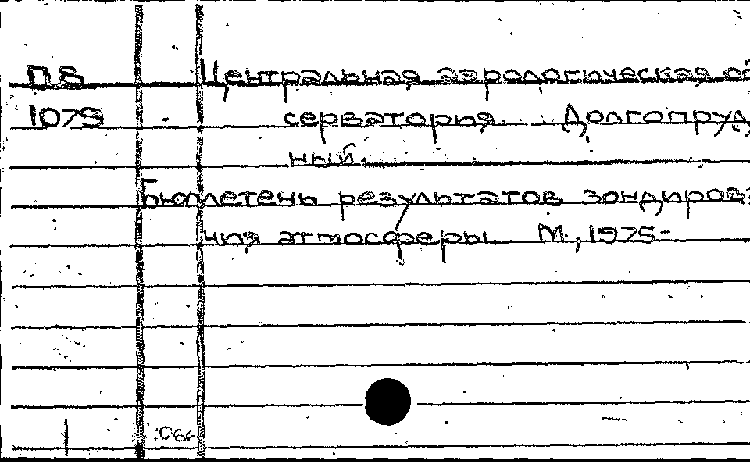 П8 Центральная аэрологическая об
1079 серватория. Долгопруд
ный.
Бюллетень результатов зондирова
ния атмосферы М., 1975-